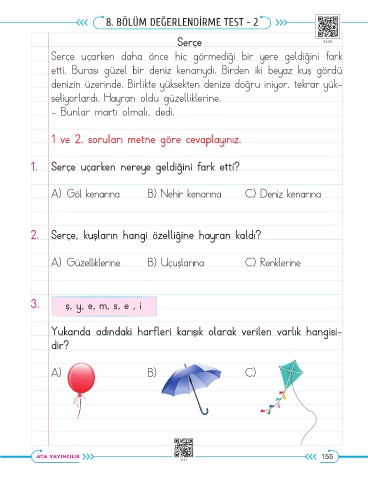 8. BÖLÜM DEĞERLENDİRME TEST - 2
Serçe
Serçe uçarken daha önce hiç görmediği bir yere geldiğini fark
etti. Burası güzel bir deniz kenarıydı. Birden iki beyaz kuş gördü
denizin üzerinde. Birlikte yüksekten denize doğru iniyor, tekrar yük-
seliyorlardı. Hayran oldu güzelliklerine.
- Bunlar martı olmalı, dedi.
1 ve 2. soruları metne göre cevaplayınız.
1. Serçe uçarken nereye geldiğini fark etti?
A) Göl kenarına B) Nehir kenarına C) Deniz kenarına
2. Serçe, kuşların hangi özelliğine hayran kaldı?
A) Güzelliklerine B) Uçuşlarına C) Renklerine
3. ş, y, e, m, s, e , i
Yukarıda adındaki harfleri karışık olarak verilen varlık hangisi-
dir?
A) B) C)
ATA YAYINCILIK 155